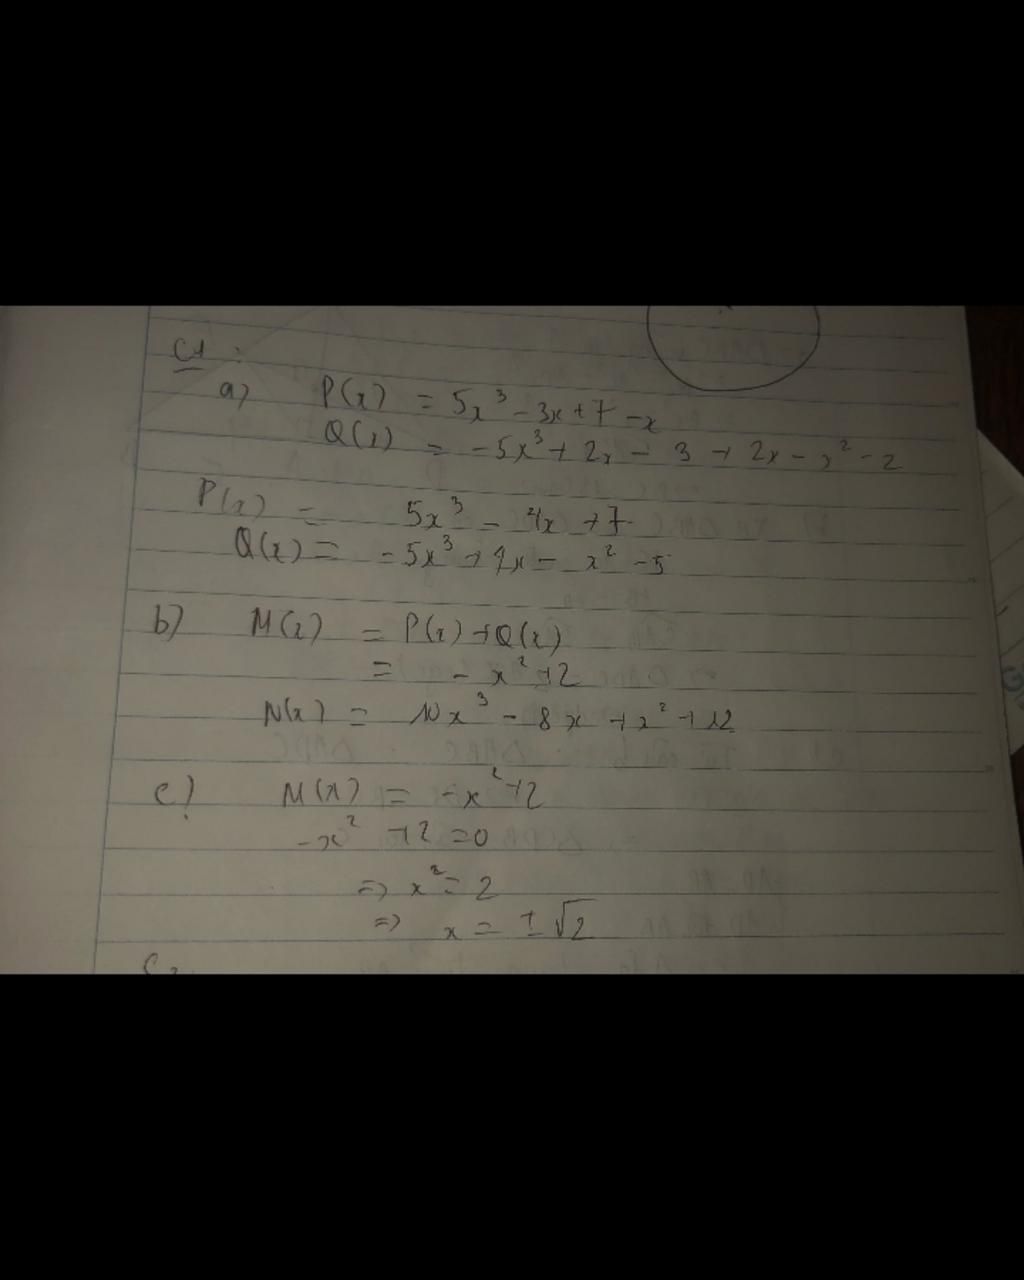 C1 :
a) P(x) = 5x³ - 3x + 7 - x
Q(x) = -5x³ + 2x - 3 + 2x - x² - 2
P(x) = 5x³ - 4x + 7
Q(x) = -5x³ + 4x - x² - 5
b) M(x) = P(x) + Q(x)
= -x² + 2
N(x) = 10x³ - 8x + x² + 12
c) M(x) = -x² + 2
-x² + 2 = 0
=> x² = 2
=> x = ±√2